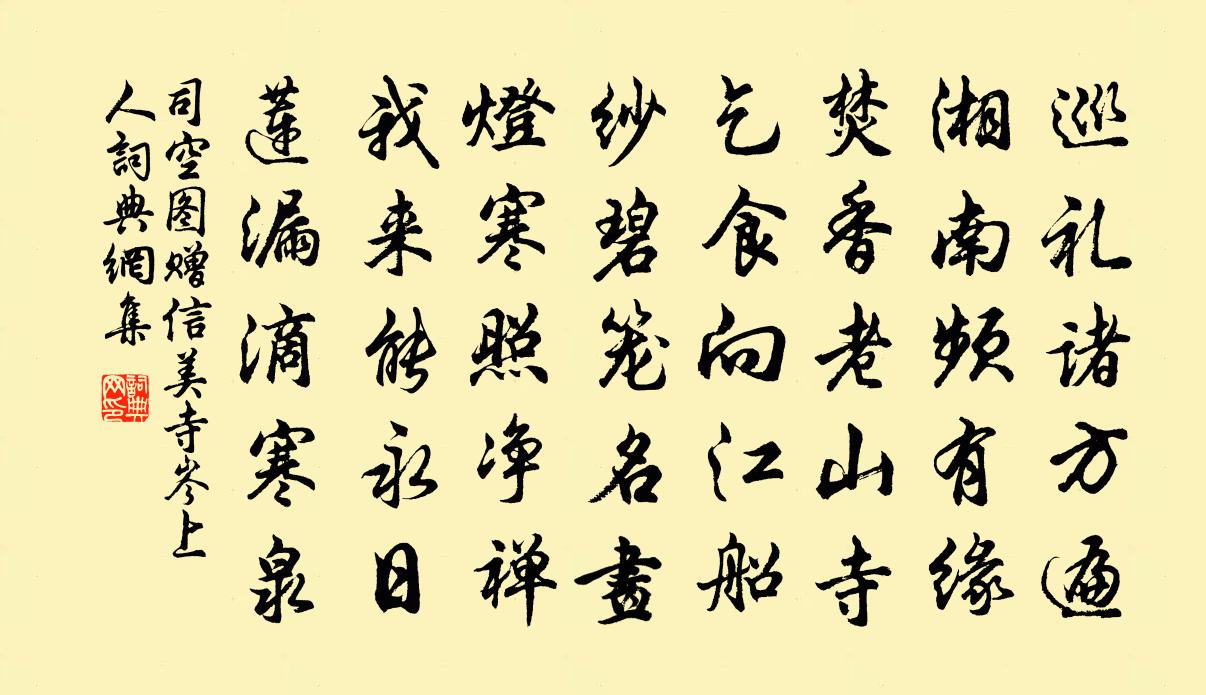 巡礼诸方遍
湘南频有缘
焚香老山寺
乞食向江船
纱碧笼名畫
燈寒照净禅
我来能永日
蓮漏滴寒泉
司空图赠信美寺岑上
人詞典網集
詞典
网印